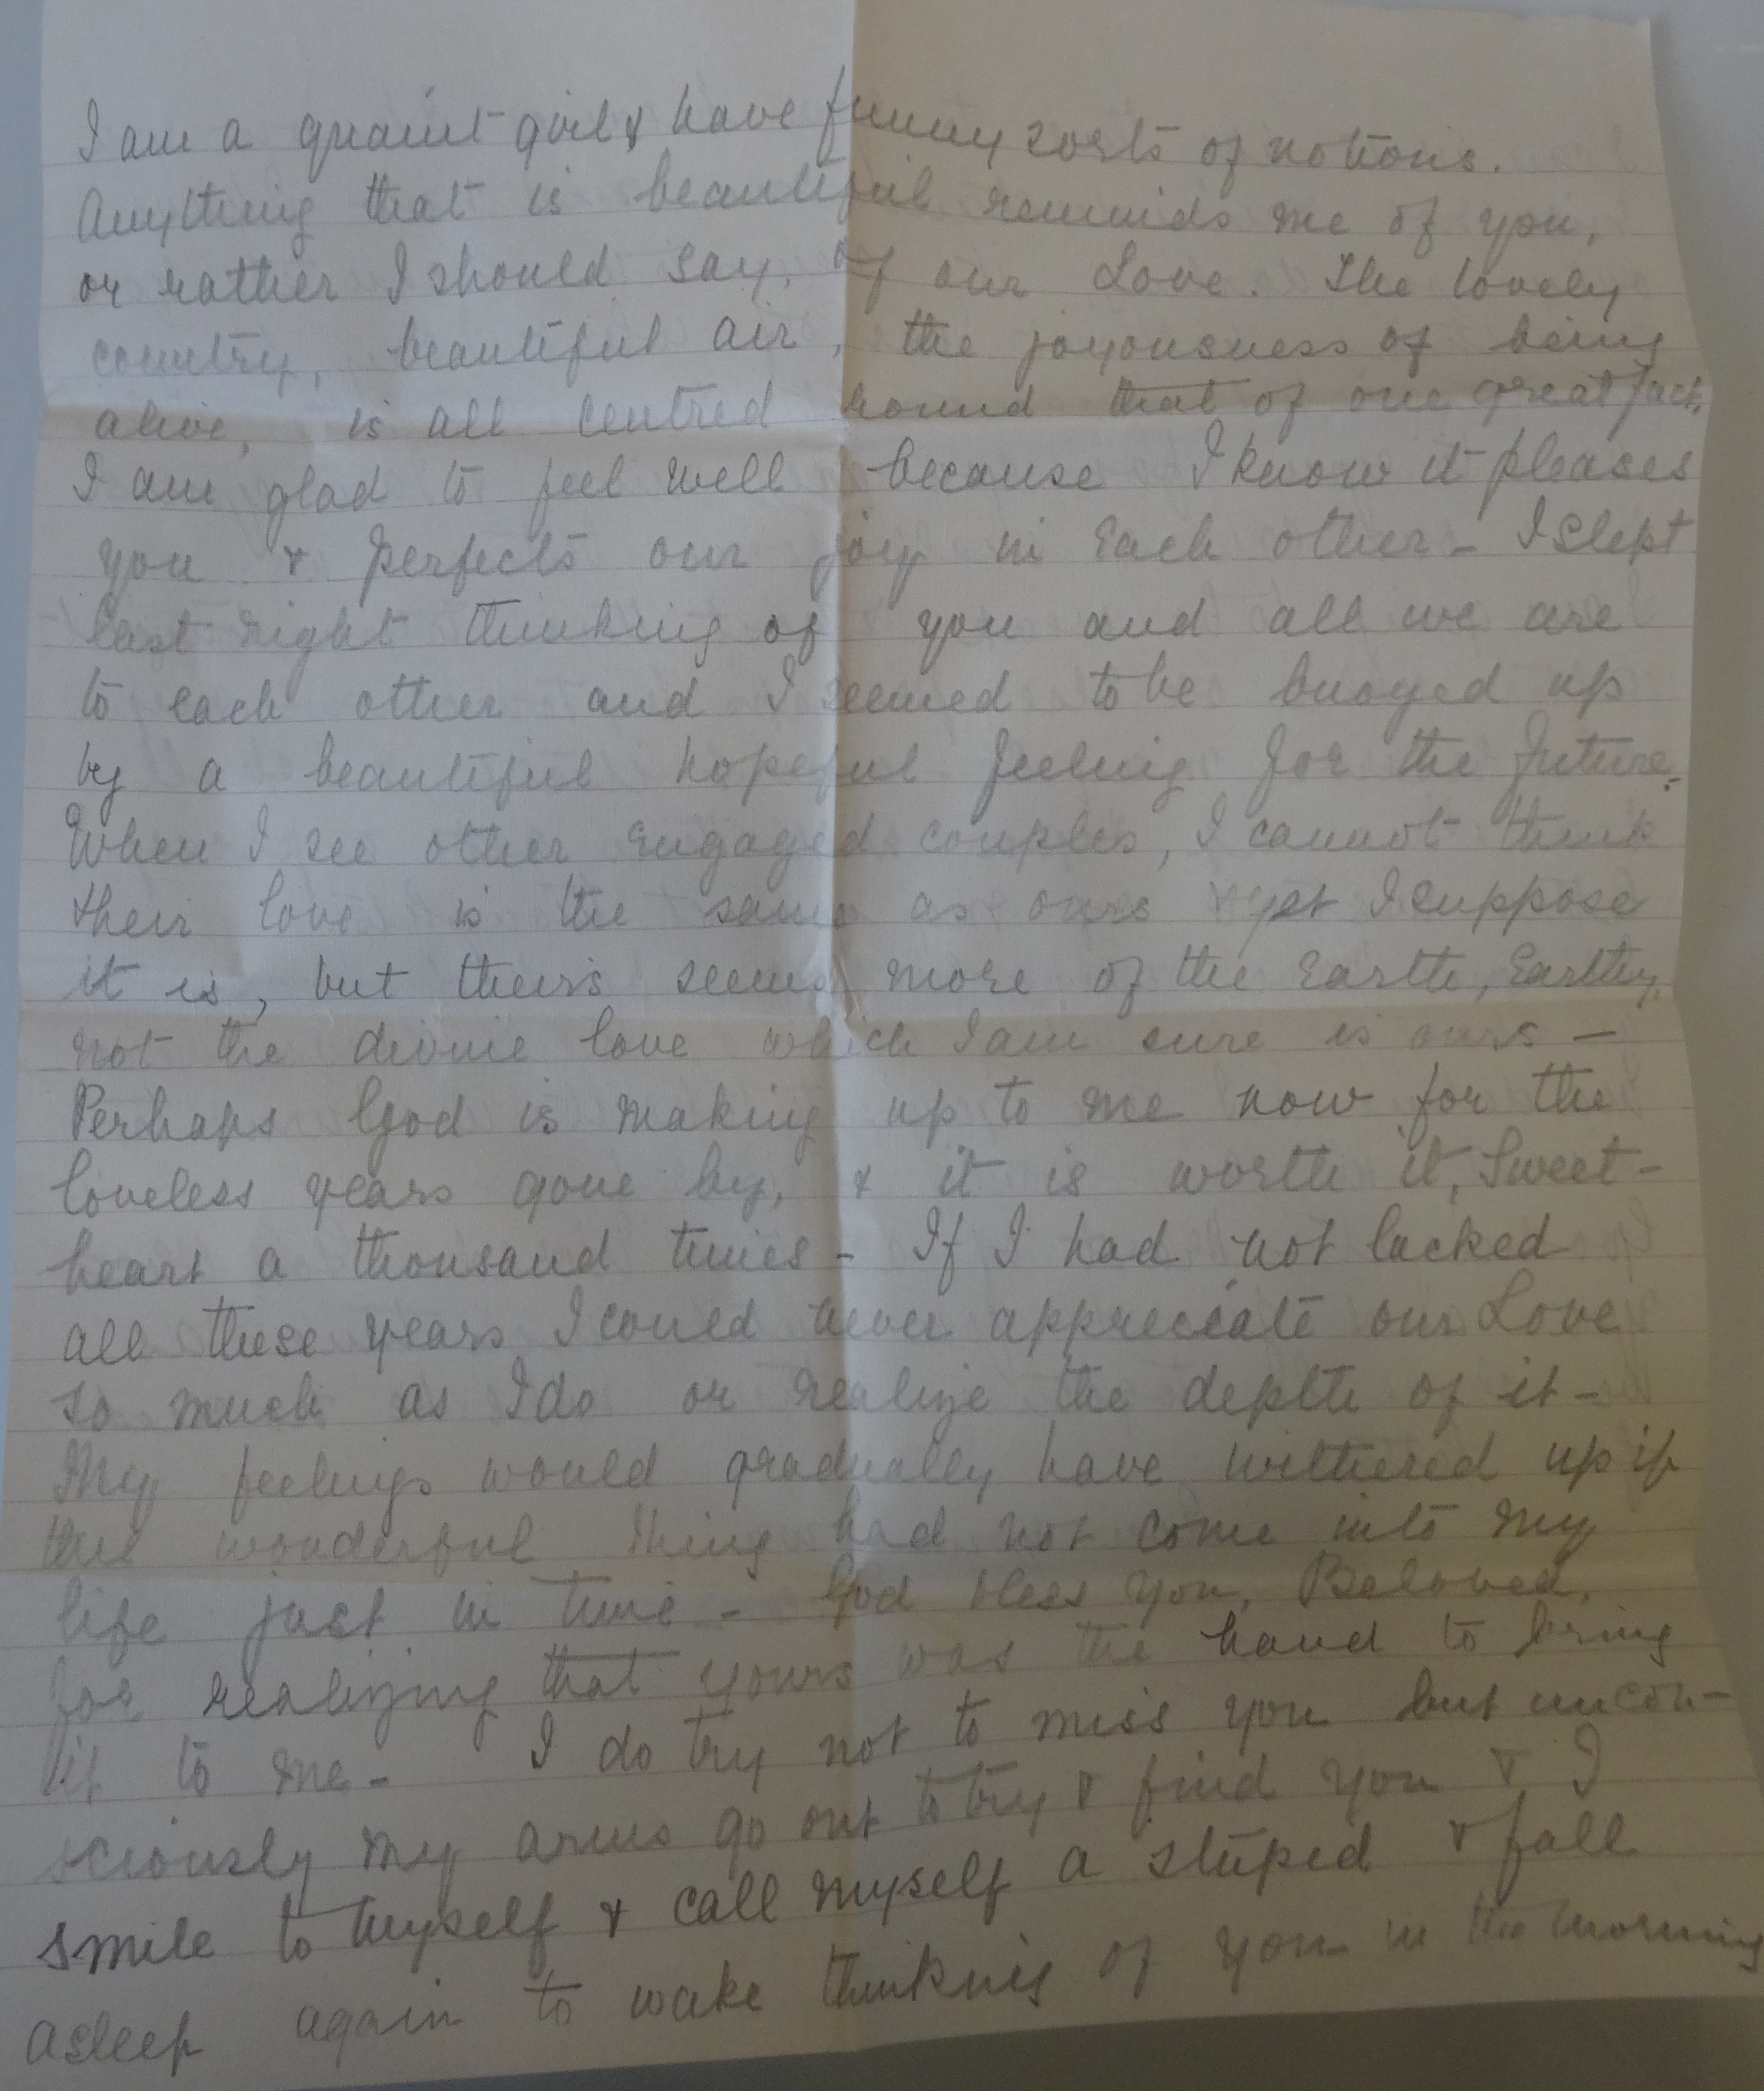 I am a quaint girl & have funny sorts of notions.
Anything that is beautiful reminds me of you,
or rather I should say, of our Love. The lovely
country, beautiful air, the joyousness of being
alive, is all centred round that of one great fact.
I am glad to feel well because I know it pleases
you & perfects our joy in Each other - I slept
last night thinking of you and all we are
to each other and I seemed to be buoyed up
by a beautiful hopeful feeling for the future.
When I see other Engaged couples, I cannot think
their love is the same as ours & yet I suppose
it is, but theirs seems more of the Earth, Earthy,
not the divine love which I am sure is ours -
Perhaps God is making up to me now for the
loveless years gone by, & it is worth it, Sweet-
heart a thousand times - If I had not lacked
all these years I could never appreciate our Love
so much as I do or realize the depth of it -
My feelings would gradually have withered up if
this wonderful thing had not come into my
life just in time - God bless you, Beloved,
for realizing that yours was the hand to bring
it to me - I do try not to miss you but uncon-
sciously my arms go out to try & find you & I
smile to myself & call myself a stupid & fall
asleep again to wake thinking of you in the morning